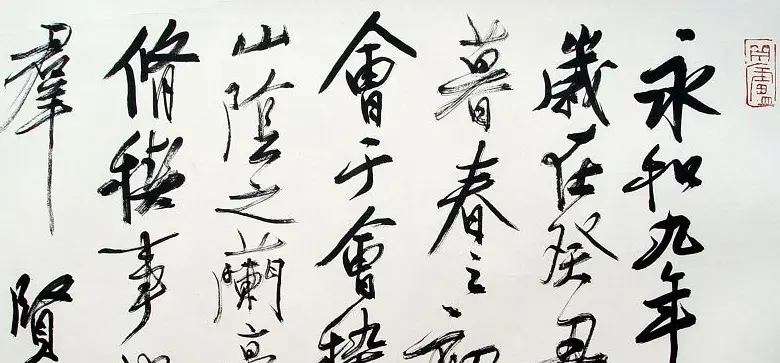 永和九年
歲在癸丑
暮春之初
會于會稽
山陰之蘭亭
脩稧事
羣賢